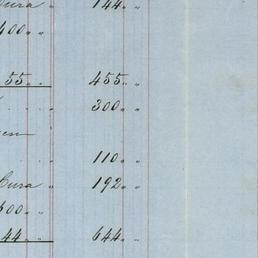 Cura " 144 " "
400 " "
55 " " 455 " "
300 " "
" 110 " "
Cura " 192 " "
500 " "
44 " " 644 " "